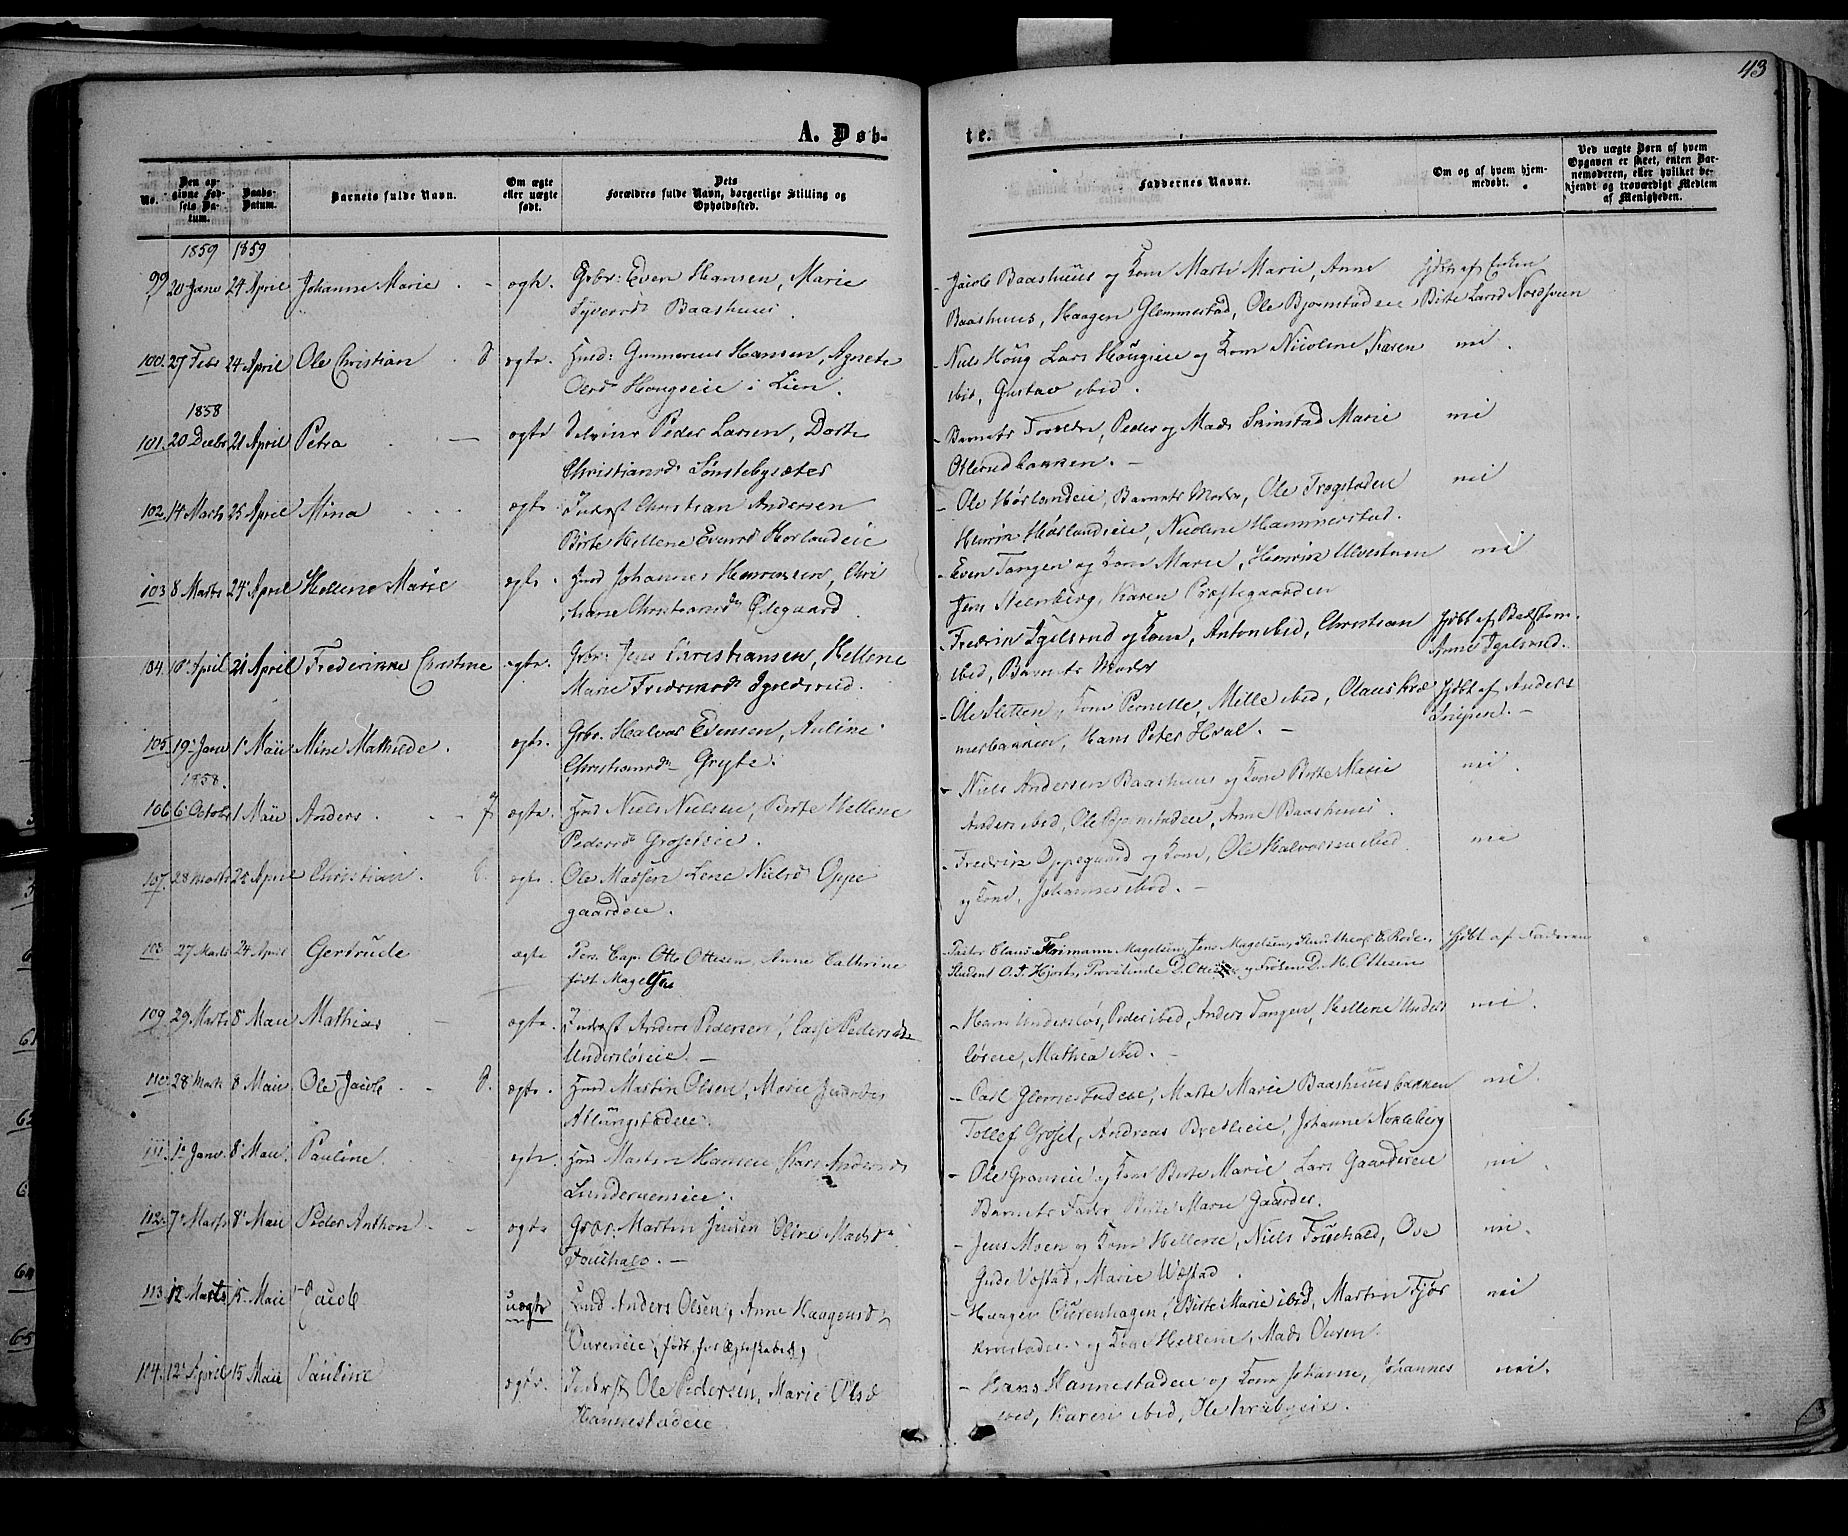 43
A. Døb-
te.
No.
Den opgivne Fødsels Datum.
Daabs-Datum.
Barnets fulde Navn.
Om ægte eller uægte født.
Dets Forældres fulde Navn, borgerlige Stilling og Opholdssted.
Faddernes Navne.
Om og af hvem hjemmedøbt.
Ved uægte Børn af hvem Opgaven er skeet, enten Barnemoderen, eller hvilket bekjendt og troværdigt Medlem af Menigheden.
1859 1859
99 20 Janv 24 April Johanne Marie ogte Grbr: Even Hansen, Marie
Syversd Baashuus
Jacob Baashuus og Kone Marte Marie, Anne
Baashuus, Haagen Glemmestad, Ole Bjornstadeie
Birte Larsd Nordsveen
100. 27 Febr 24 April Ole Christian ogte. Huusm: Gunnerius Hansen, Agnete
Olsd Hougseie i Lien.
Niels Houg Lars Hougeie og Kone Nicoline Karen
ibid, Gustav ibid.
nei.
1858
101. 20 Decbr 21 April Petra ogte Selveier Peder Larsen, Dorte
Christiansd Sønstebysæter
Barnets Forældre, Peder og Mads Skinstad Marie
Ottersudbakken.
nei
102. 14 Marts 25 April Mina ogte Inderst Christian Andersen
Birte Hellene Evensd Horlandeie
Ole Hørlandeie, Barnets Moder, Ole Trogstadeie
Henrik Hørlandseie, Nicoline Hammerstad.
nei
103 8 Marts 24 April Hellene Marie ogte. Huusm Johannes Henriksen, Chri
stiane Christiansd Ødegaard
Even Tangen og Kone Marie, Henrik Ulvestuen
Jens Steenberg, Karen Præstegaarden
nei
104. 10 April 21 April Frederikke Christine ogte. Grbr: Jens Christiansen, Hellene
Marie Frederiksd Igelsrud.
Fredrik Igelsrud og Kone, Anton ibid, Christian
ibid, Barnets Moder
hjdbt af Bedstem.
Anne Igelsrud.
105. 19 Janv 1 Maii Mine Mathilde. ogte. Grbr. Halvor Evensen, Auline
Christiansd Gryte.
Ole Sletten, Kone Pernelle, Mille ibid, Olaus Kræ
merbakken, Hans Peter Hval.
hjdbt af Anders
Snipen.
1858.
106 6 Octobr 1 Maii Anders ogte. Huusm Niels Nielsen, Birte Hellene
Pedersd Grosetseie.
Niels Andersen Baashuus og Kone Birte Marie
Anders ibid, Ole Bjornstadeie, Anne Baashuus.
nei.
107. 28 Marts 25 April Christian. ogte. Ole Madsen Lene Nielsd Oppe
gaardeie.
Fredrik Oppegaard og Kone, Ole Halvorsen ibid.
og Kone, Johannes ibid.
nei
108 27 Marts 24 April Gertrude ægte Pers. Cap. Otto Ottesen, Anne Cathrine
født Magelsen
Pastor Claus Heimann Magelsen, Jens Magelsen, E. Rode
Student O. T. Hjort, Provstinde D. Ottesen og Frøken D. M. Ottesen
hjdbt af Faderen
109. 29 Marts 8 Maii Mathias ogte. Inderst Anders Pedersen, Pedersd
Undersløseie.
Hans Undersløs, Peder ibid, Anders Tangen, Hellene Unders
løseie, Mathea ibid.
nei.
110. 28 Marts 8 Maii Ole Jacob ægte. Huusm Martin Olsen, Marie
Atlungstadeie.
Carl Glemestadeie, Marte Marie Baashuusbakken
Tollef Groset, Andreas Bredlieie, Johanne Nokleberg
nei.
111. 1 Janv. 8 Maii. Pauline ogte. Huusm Morten Hansen Kari Andersd
Lunderuenseie.
Ole Granseie og Kone Birte Marie Lars Gaardseie
Barnets Fader Birte Marie Gaarder.
nei.
112. 7 Marts 8 Maii Peder Anthon ogte Grbr. Martin Jensen Oline Madsd
Fousthald.
Jens Moen og Kone Hellene, Niels Fousthald, Ove
Gude Vostad, Marie Wostad.
nei.
113. 12 Marts 15 Maii Jacob uægte Anders Olsen, Anne Haagensd
Oureneie, født før Ægteskabet,
Haagen Ourenhagen, Birte Marie ibid, Martin
og Kone Hellene, Mads Ouren.
nei
114. 12 April 15 Maii Pauline ogte. Inderst Ole Pedersen, Marie Olsd
Hannestadeie
Hans Hannestadeie og Kone Johanne, Johannes
ibid, Karen ibid, Ole
nei.